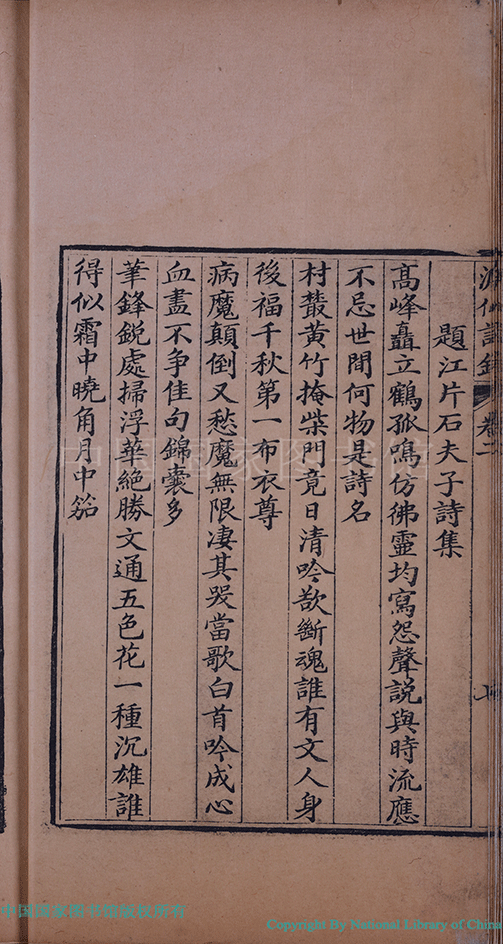 題江片石夫子詩集
高峰矗立鶴孤鳴仿彿靈均寫怨聲說與時流應
不忌世間何物是詩名
村藂黃竹掩柴門竟日清吟欲斷魂誰有文人身
後福千秋第一布衣尊
病魔顛倒又愁魔無限淒其哭當歌白首吟成心
血盡不爭佳句錦囊多
筆鋒銳處掃浮華絕勝文通五色花一種沉雄誰
得似霜中曉角月中笳
中国国家图书馆
中国国家图书馆版权所有
Copyright By National Library of China